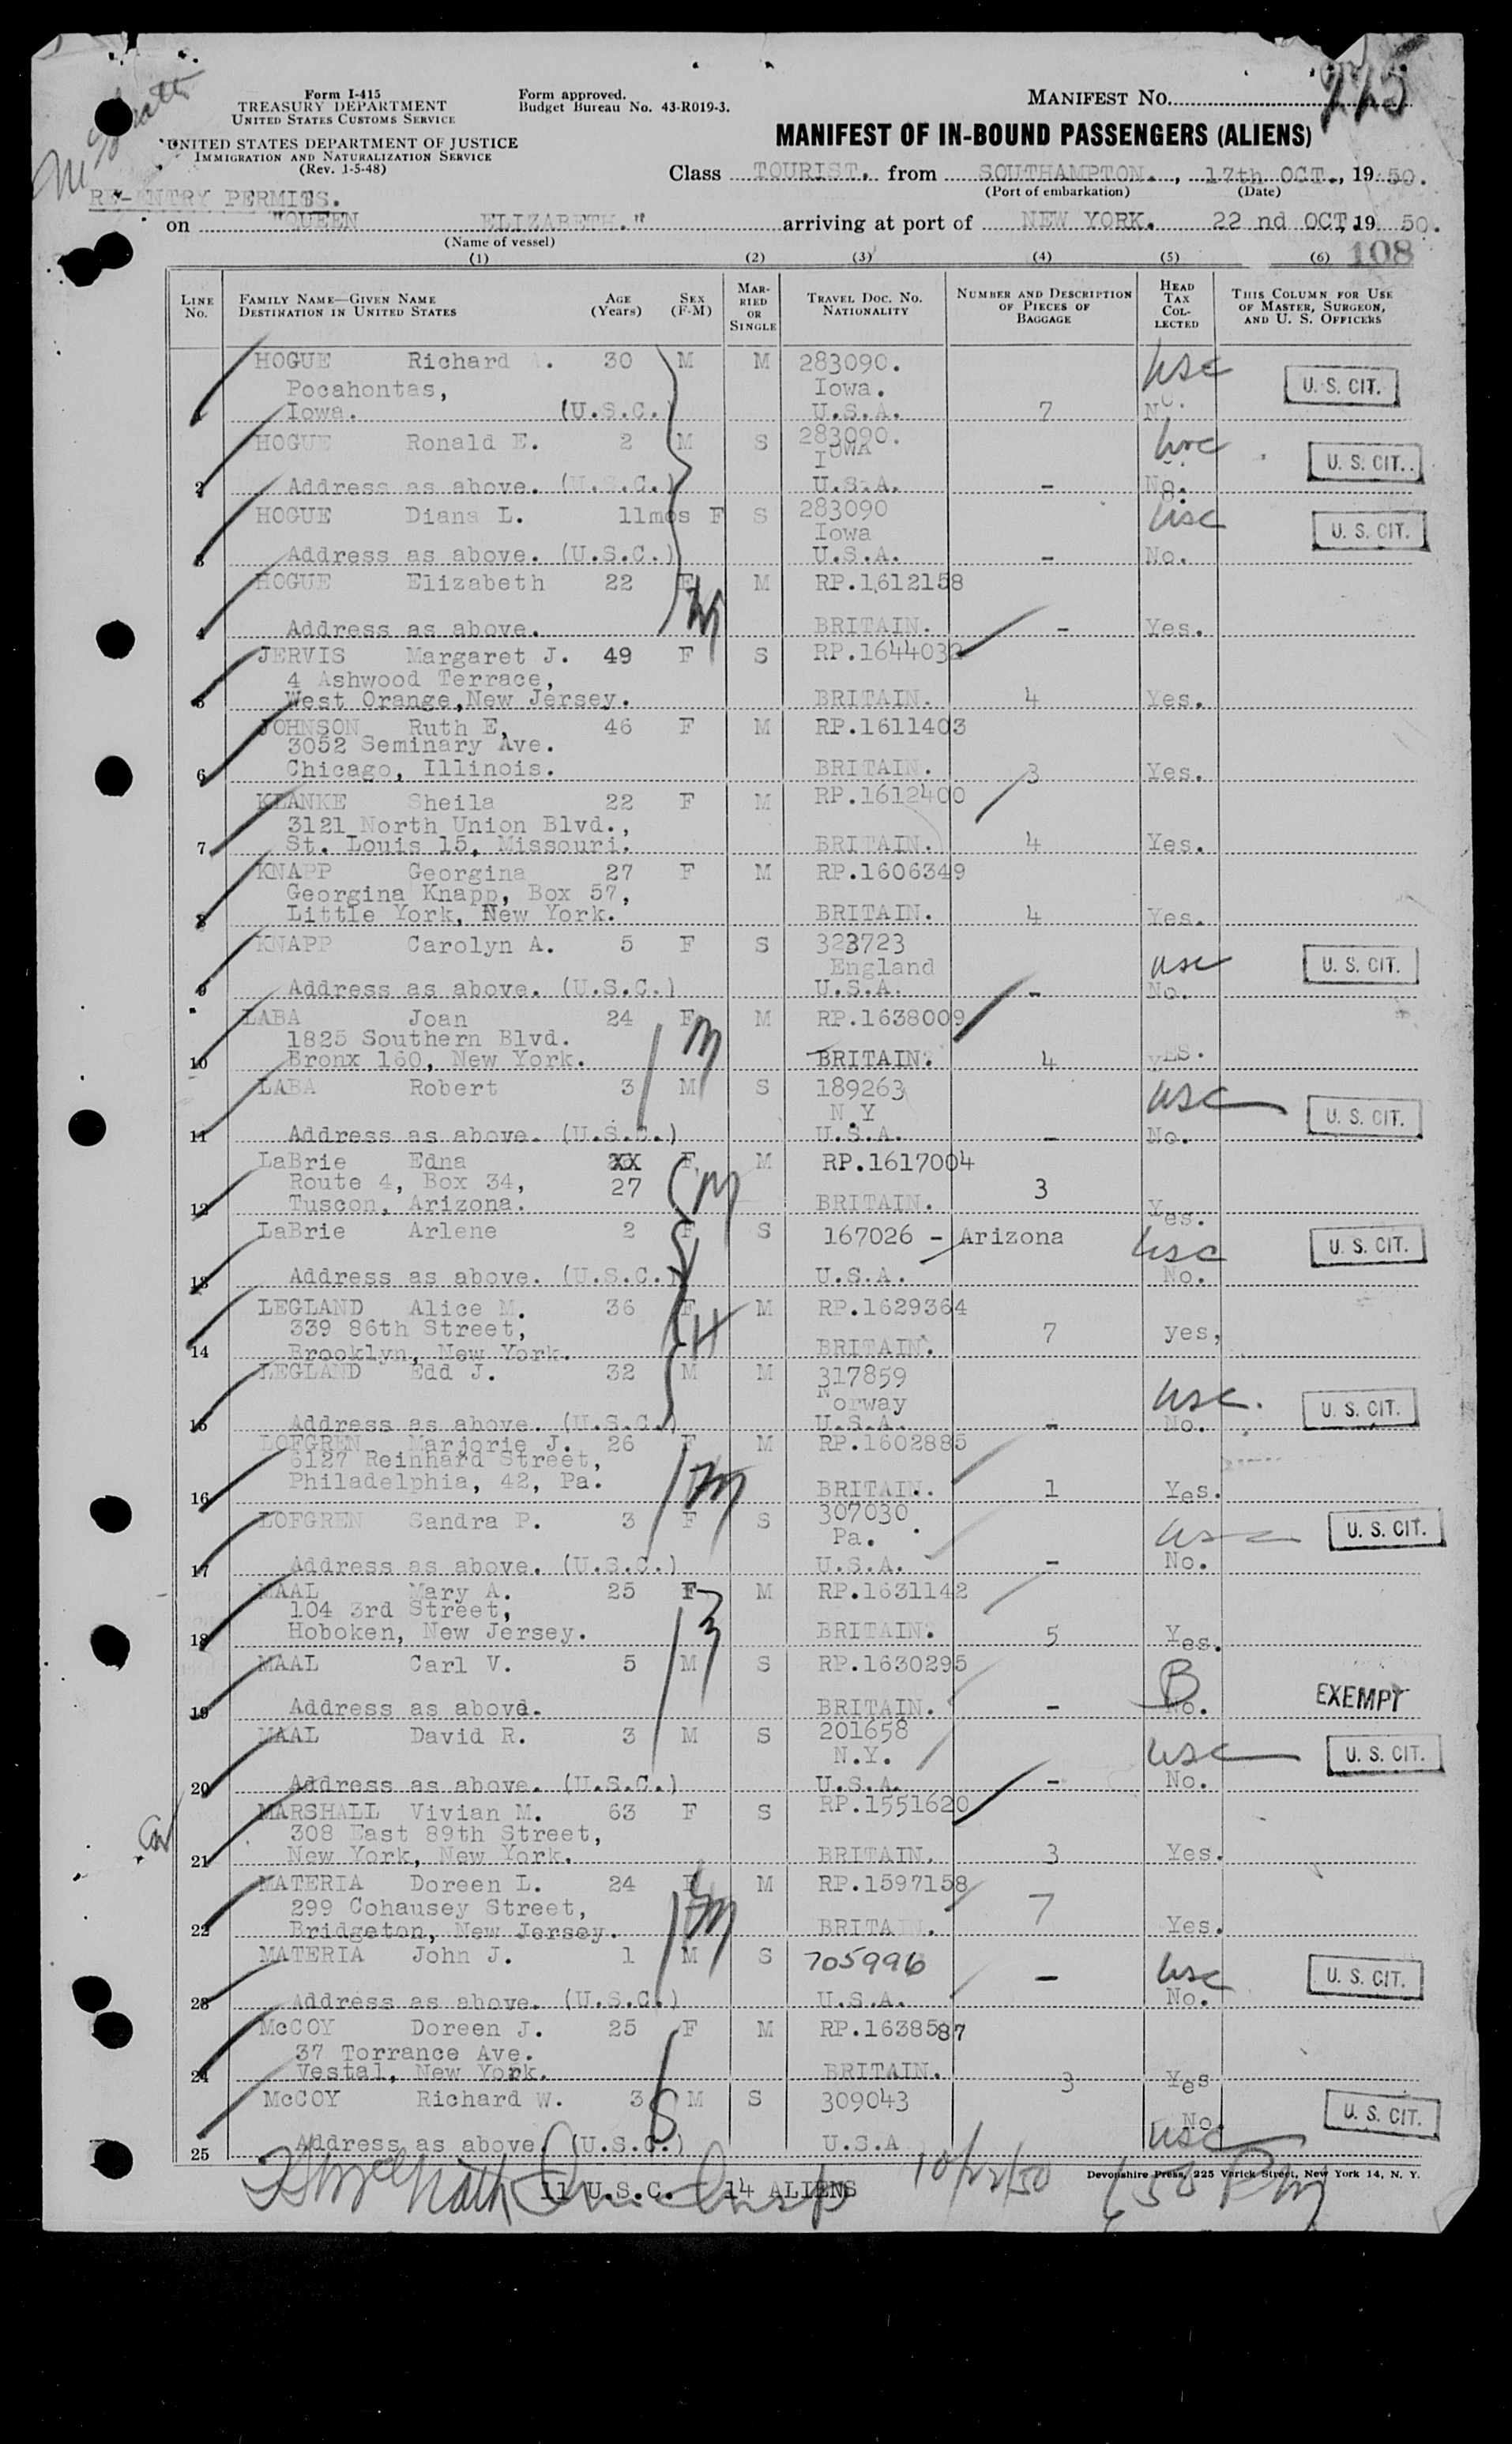 Form I-415
TREASURY DEPARTMENT
UNITED STATES CUSTOMS SERVICE
UNITED STATES DEPARTMENT OF JUSTICE
IMMIGRATION AND NATURALIZATION SERVICE
(Rev. 1-5-48)
Form approved.
Budget Bureau No. 43-R019-3.
MANIFEST NO.
MANIFEST OF IN-BOUND PASSENGERS (ALIENS)
Class TOURIST. from SOUTHAMPTON. , 17th OCT., 19 50.
(Port of embarkation) (Date)
RE-ENTRY PERMITS.
on "QUEEN ELIZABETH." arriving at port of NEW YORK. 22 nd OCT, 19 50.
(Name of vessel)
(1) (2) (3) (4) (5) (6) 108
LINE No. FAMILY NAME—GIVEN NAME DESTINATION IN UNITED STATES AGE (Years) SEX (F-M) MARRIED OR SINGLE TRAVEL DOC. NO. NATIONALITY NUMBER AND DESCRIPTION OF PIECES OF BAGGAGE HEAD TAX COLLECTED THIS COLUMN FOR USE OF MASTER, SURGEON, AND U. S. OFFICERS
HOGUE Richard A. 30 M M 283090. usc U. S. CIT.
Pocahontas, Iowa.
1 Iowa. (U.S.C.) U.S.A. 7 No.
HOGUE Ronald E. 2 M S 283090. usc U. S. CIT.
Iowa
2 Address as above. (U.S.C.) U.S.A. - No.
HOGUE Diana L. 11mos F S 283090 usc U. S. CIT.
Iowa
3 Address as above. (U.S.C.) U.S.A. - No.
HOGUE Elizabeth 22 F M RP.1612158
4 Address as above. BRITAIN. - Yes.
JERVIS Margaret J. 49 F S RP.1644032
4 Ashwood Terrace,
5 West Orange,New Jersey. BRITAIN. 4 Yes.
JOHNSON Ruth E, 46 F M RP.1611403
3052 Seminary Ave.
6 Chicago, Illinois. BRITAIN. 3 Yes.
KLANKE Sheila 22 F M RP.1612400
3121 North Union Blvd.,
7 St. Louis 15, Missouri. BRITAIN. 4 Yes.
KNAPP Georgina 27 F M RP.1606349
Georgina Knapp, Box 57,
8 Little York, New York. BRITAIN. 4 Yes.
KNAPP Carolyn A. 5 F S 323723
England usc U. S. CIT.
9 Address as above. (U.S.C.) U.S.A. - No.
LABA Joan 24 F M RP.1638009
1825 Southern Blvd.
10 Bronx 160, New York. BRITAIN. 4 YES.
LABA Robert 3 M S 189263 usc U. S. CIT.
N.Y
11 Address as above. (U.S.C.) U.S.A. - No.
LaBrie Edna XX F M RP.1617004
Route 4, Box 34, 27 3
12 Tuscon, Arizona. BRITAIN. Yes.
LaBrie Arlene 2 F S 167026 - Arizona usc U. S. CIT.
13 Address as above. (U.S.C.) U.S.A. No.
LEGLAND Alice M. 36 F M RP.1629364
339 86th Street, 7 yes,
14 Brooklyn, New York. BRITAIN.
LEGLAND Edd J. 32 M M 317859
Norway usc. U. S. CIT.
15 Address as above. (U.S.C.) U.S.A. - No.
LOFGREN Marjorie J. 26 F M RP.1602885
6127 Reinhard Street,
16 Philadelphia, 42, Pa. BRITAIN. 1 Yes.
LOFGREN Sandra P. 3 F S 307030 usc U. S. CIT.
Pa.
17 Address as above. (U.S.C.) U.S.A. - No.
MAAL Mary A. 25 F M RP.1631142
104 3rd Street,
18 Hoboken, New Jersey. BRITAIN. 5 Yes.
MAAL Carl V. 5 M S RP.1630295 B
19 Address as above. BRITAIN. - No. EXEMPT
MAAL David R. 3 M S 201658
N.Y. usc U. S. CIT.
20 Address as above. (U.S.C.) U.S.A. - No.
MARSHALL Vivian M. 63 F S RP.1551620
308 East 89th Street,
21 New York, New York. BRITAIN. 3 Yes.
MATERIA Doreen L. 24 F M RP.1597158
299 Cohausey Street, 7
22 Bridgeton, New Jersey. BRITAIN. Yes.
MATERIA John J. 1 M S 705996 - usc U. S. CIT.
23 Address as above. (U.S.C.) U.S.A. No.
McCOY Doreen J. 25 F M RP.1638587
37 Torrance Ave.
24 Vestal, New York. BRITAIN. 3 Yes
McCOY Richard W. 3 M S 309043 No. U. S. CIT.
25 Address as above. (U.S.C.) U.S.A usc
Devonshire Press, 225 Varick Street, New York 14, N. Y.
11 U.S.C. - 14 ALIENS 10/22/50